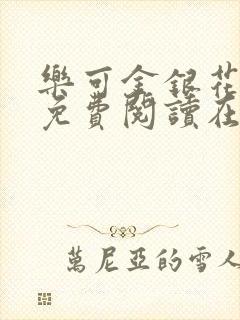 樂可金銀花
免費閱讀在
萬尼亞的雪人